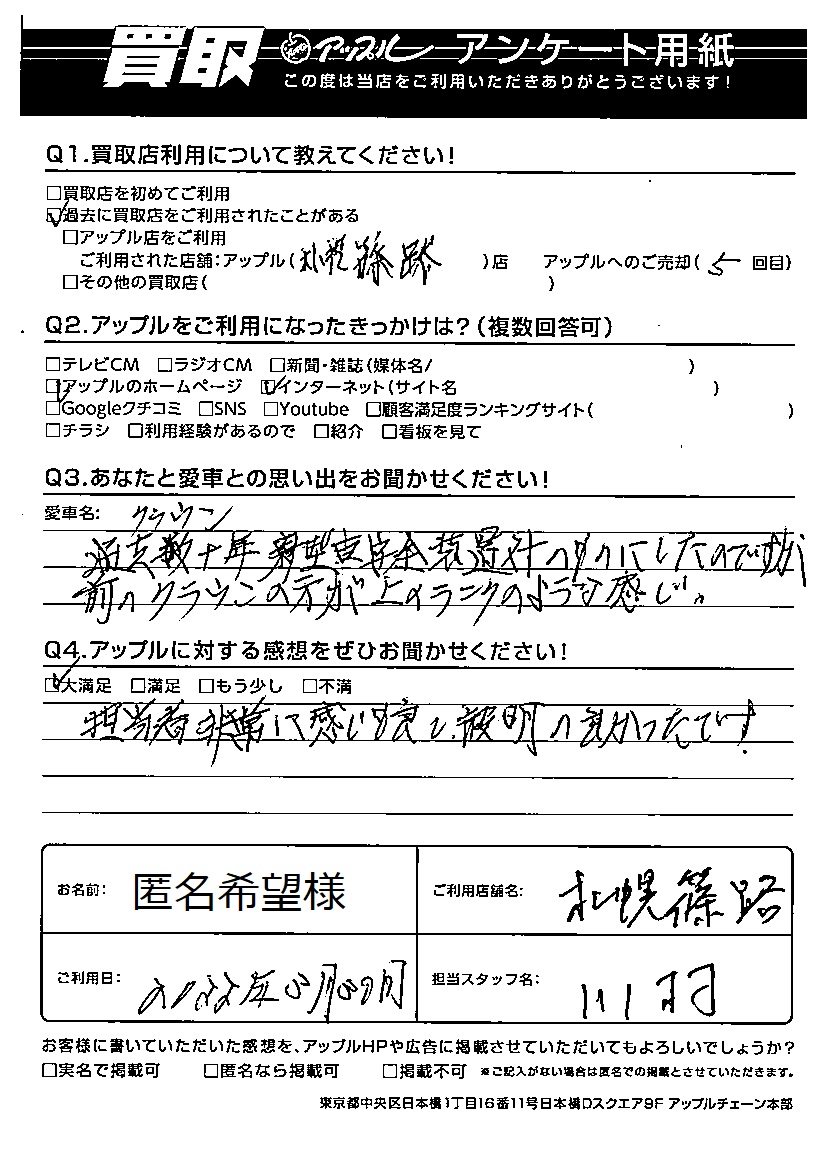 買取 アップル アンケート用紙
この度は当店をご利用いただきありがとうございます!
Q1.買取店利用について教えてください!
□買取店を初めてご利用
☑過去に買取店をご利用されたことがある
□アップル店をご利用
ご利用された店舗:アップル(札幌篠路)店 アップルへのご売却(5回目)
□その他の買取店( )
Q2.アップルをご利用になったきっかけは?(複数回答可)
□テレビCM □ラジオCM □新聞・雑誌(媒体名/ )
☑アップルのホームページ ☑インターネット(サイト名 )
□Googleクチコミ □SNS □Youtube □顧客満足度ランキングサイト( )
□チラシ □利用経験があるので □紹介 □看板を見て
Q3.あなたと愛車との思い出をお聞かせください!
愛車名: クラウン
過去数十年 新型車安全装置付 にしたのですが
前のクラウンの方が上のランクのような感じ。
Q4.アップルに対する感想をぜひお聞かせください!
☑大満足 □満足 □もう少し □不満
担当者非常に感じ良く、説明 良かったです!
お名前: 匿名希望様 ご利用店舗名: 札幌篠路
ご利用日: 2022年 月 日 担当スタッフ名: 川村
お客様に書いていただいた感想を、アップルHPや広告に掲載させていただいてもよろしいでしょうか?
□実名で掲載可 □匿名なら掲載可 □掲載不可 ※ご記入がない場合は匿名での掲載とさせていただきます。
東京都中央区日本橋1丁目16番11号日本橋Dスクエア9F アップルチェーン本部